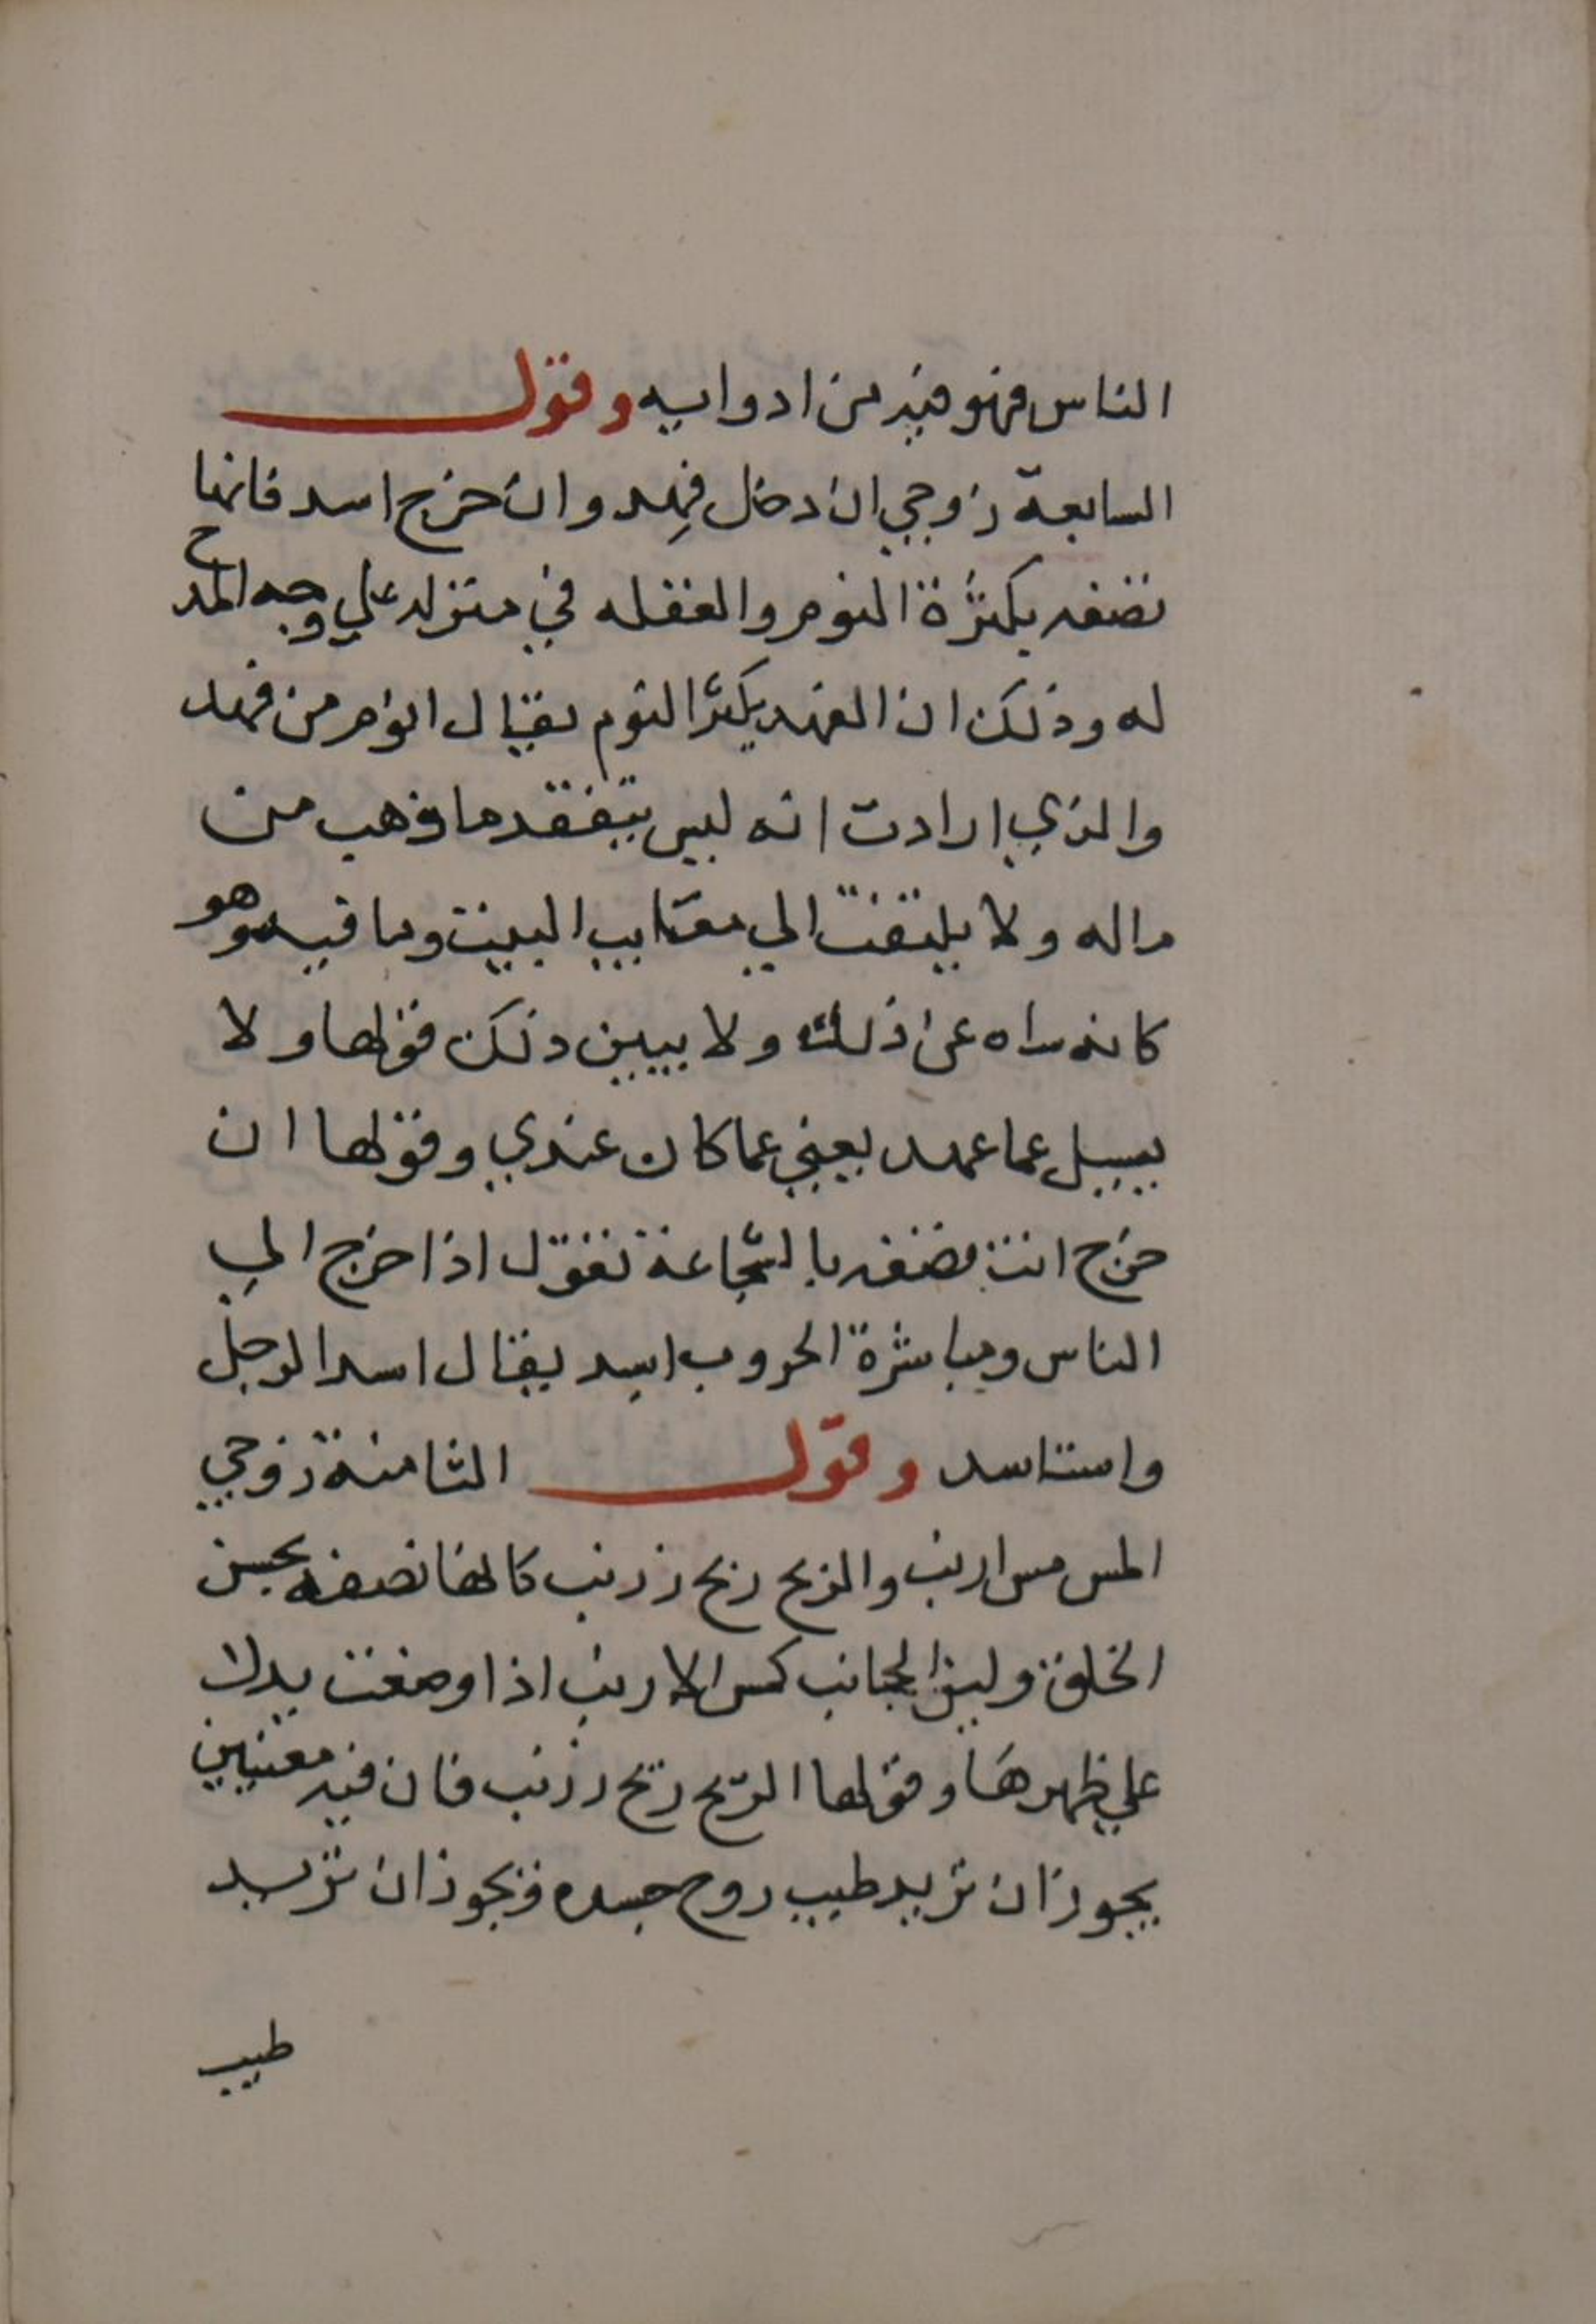 الناس فهو فيه من ادوايه وقول
السابعة زوجي ان دخل فهد وان خرج اسد فانها
تصفه بكثرة النوم والغفله في منزله علي وجه المدح
له وذلك ان الفهد يكثر النوم يقال انوم من فهد
والذي ارادت انه ليس يتفقد ما ذهب من
ماله ولا يلتفت الي معايب البيت وما فيه وهو
كانه ساه عن ذلك ولا يبين ذلك قولها ولا
يسيل عما عهد يعني عما كان عندي وقولها ان
خرج اسد تصفه بالشجاعة تقول اذا خرج الي
الناس ومباشرة الحروب اسد يقال اسد الرجل
واستاسد وقول الثامنة زوجي
المس مس ارنب والريح ريح زرنب كانها تصفه بحسن
الخلق ولين الجانب كمس الارنب اذا وضعت يدك
علي ظهرها وقولها الريح ريح زرنب فان فيه معنيين
يجوز ان تريد طيب روح جسده ويجوز ان تريد
طيب